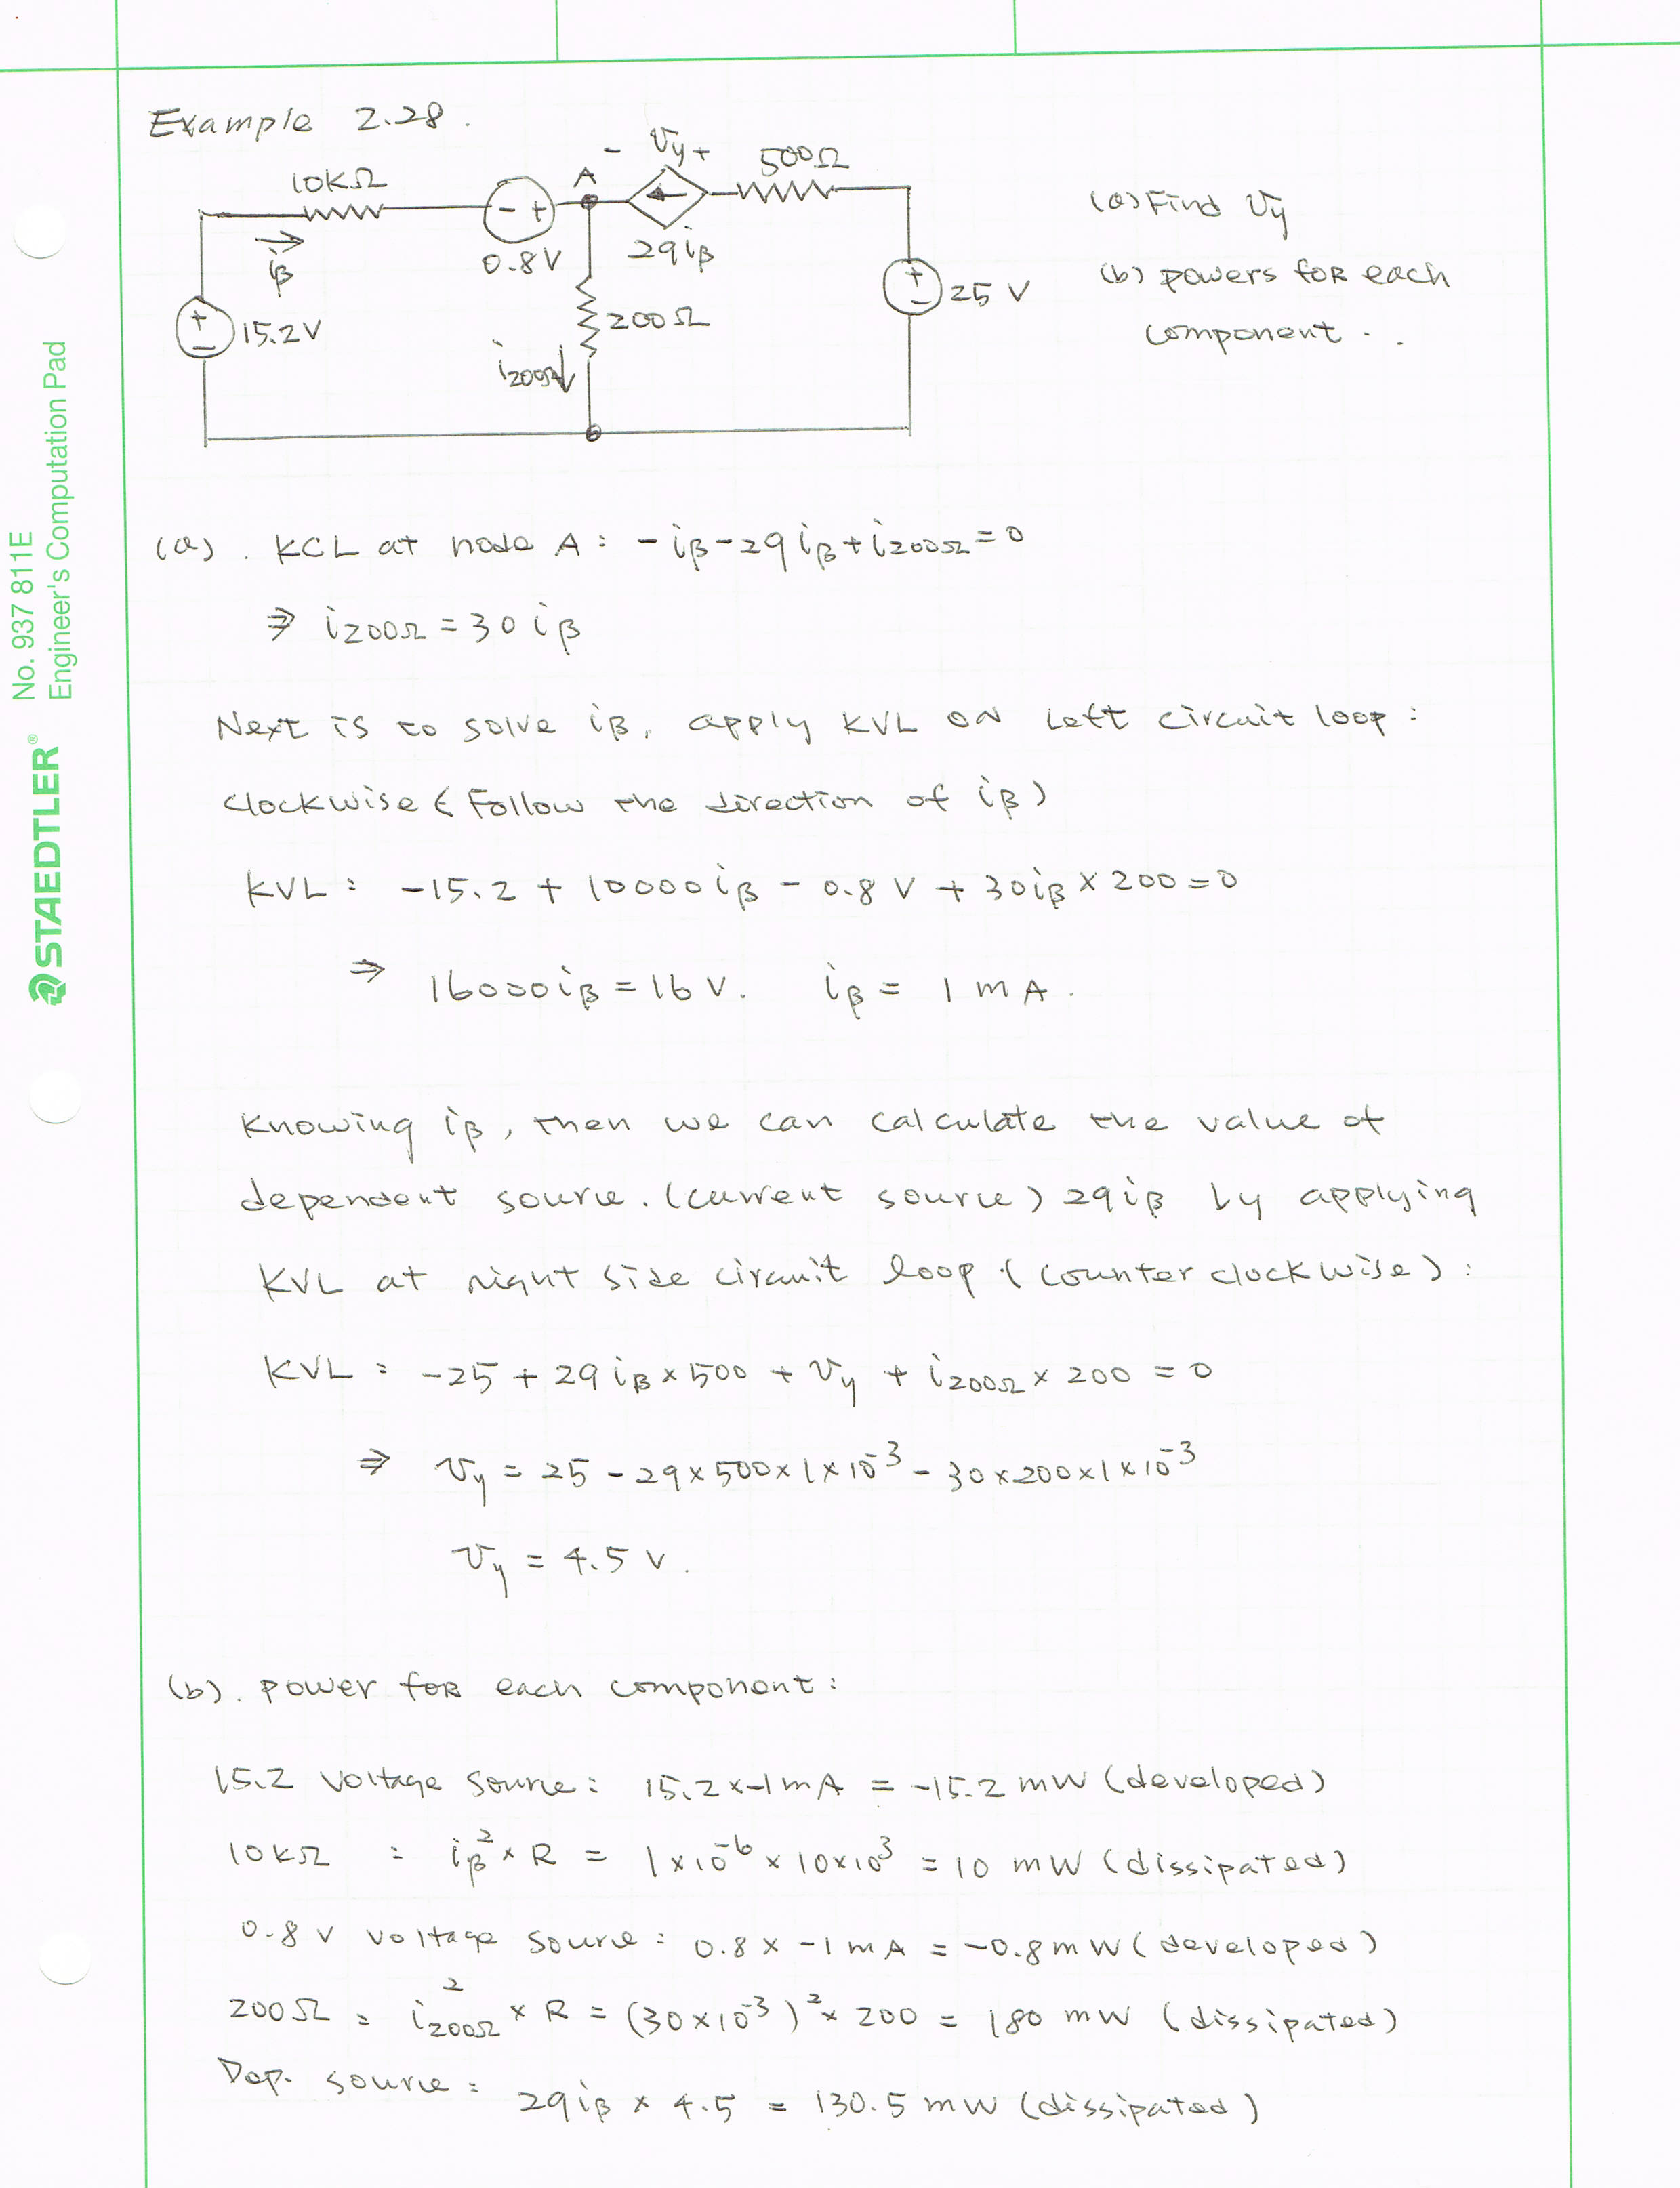 Example 2.28.
- Vy +
10KΩ
A
500Ω
(a) Find Vy
- +
iβ
0.8V
29iβ
(b) powers for each
component..
+
-
15.2V
200Ω
+
-
25 V
i200Ω
(a). KCL at node A: -iβ-29iβ+i200Ω=0
⇒ i200Ω=30iβ
Next is to solve iβ, apply KVL on left circuit loop:
clockwise (Follow the direction of iβ)
KVL: -15.2 + 10000iβ - 0.8 V + 30iβ × 200=0
⇒ 16000iβ = 16 V. iβ = 1 mA.
Knowing iβ, then we can calculate the value of
dependent source. (current source) 29iβ by applying
KVL at right side circuit loop (counter clockwise):
KVL: -25 + 29iβ×500 + Vy + i200Ω × 200 = 0
⇒ Vy = 25 - 29×500×1×10⁻³ - 30×200×1×10⁻³
Vy = 4.5 V.
(b). power for each component:
15.2 voltage source: 15.2×-1mA = -15.2 mW (developed)
10KΩ : iβ² × R = 1×10⁻⁶ × 10×10³ = 10 mW (dissipated)
0.8 V voltage source: 0.8 × -1 mA = -0.8mW (developed)
200Ω : i200Ω² × R = (30×10⁻³)² × 200 = 180 mW (dissipated)
Dep. source: 29iβ × 4.5 = 130.5 mW (dissipated)
No. 937 811E
Engineer's Computation Pad
STAEDTLER®